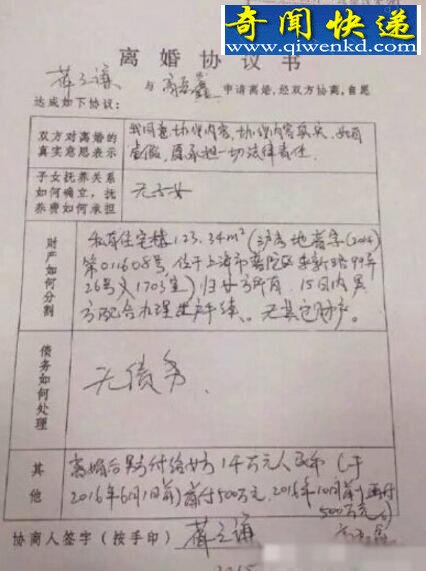 奇闻快递
www.qiwenkd.com
离婚协议书
薛之谦 与 高磊鑫 申请离婚,经双方协商,自愿
达成如下协议:
双方对离婚的
真实意思表示
我同意协议内容,协议内容真实,如有
虚假,愿承担一切法律责任.
子女抚养关系
如何确立,抚
养费如何承担
无子女
财产如何分割
私有住宅楼123.34m²(沪房地普字(2004)
第011608号,位于上海市普陀区 99弄
26号 1703室)归女方所有,15日内男
方配合办理过户手续.无其它财产.
债务如何处理
无债务.
其他
离婚后男方付给女方 1千万元人民币(于
2016年6月1日前)首付500万元,2016年10月前再付
500万元)
协商人签字(按手印) 薛之谦 高磊鑫